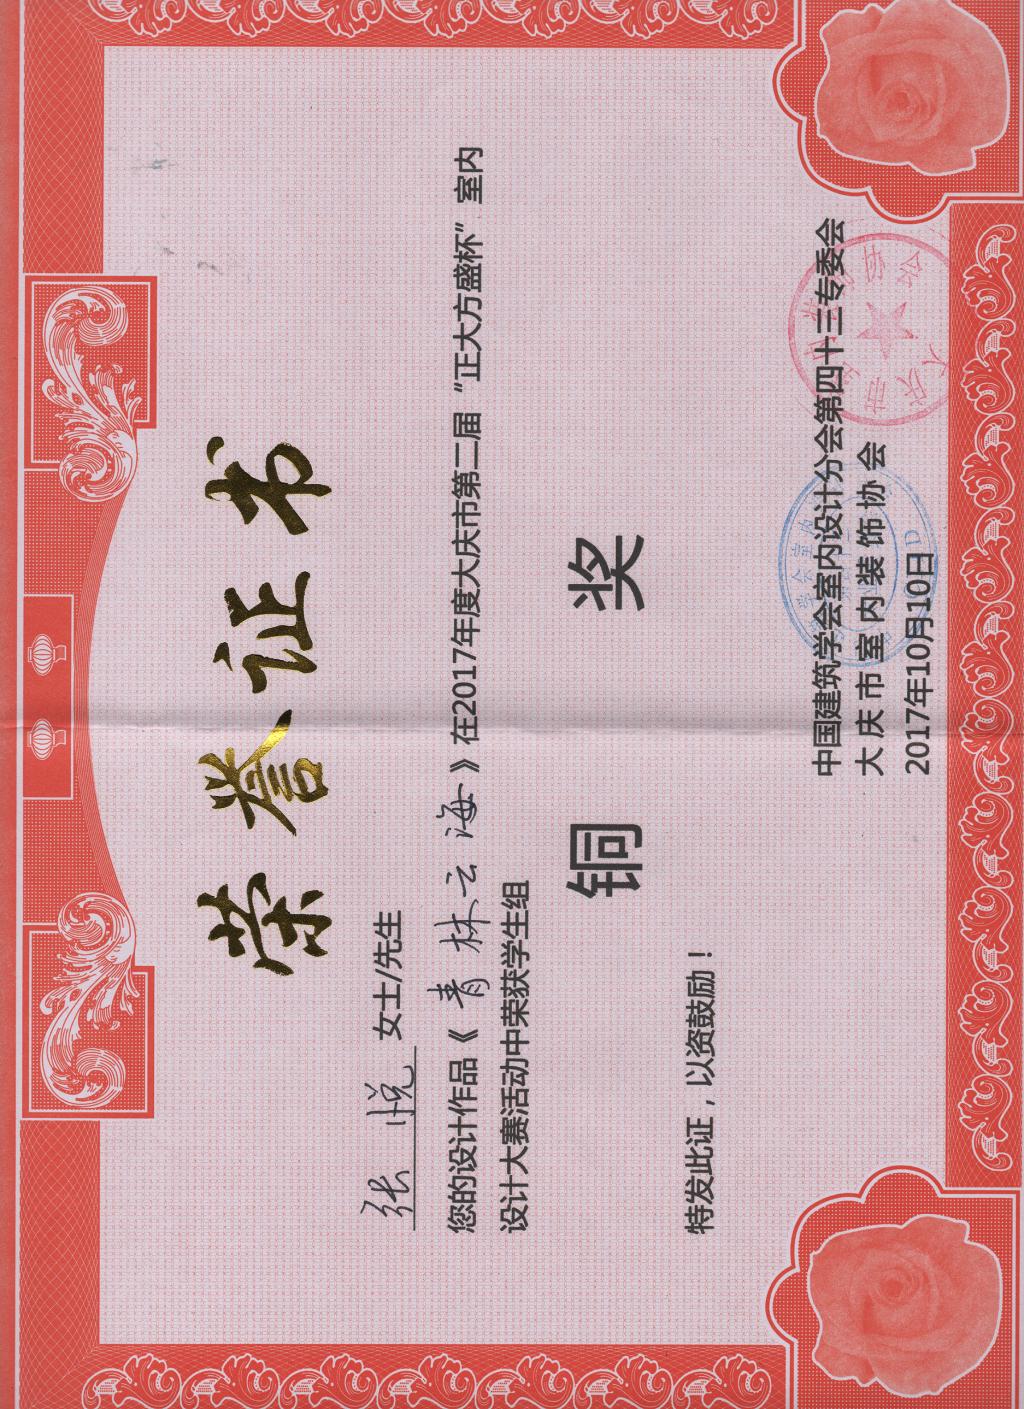 荣誉证书
张悦 女士/先生
您的设计作品《青林云海》在2017年度大庆市第二届“正大方盛杯”室内
设计大赛活动中荣获学生组
铜 奖
特发此证，以资鼓励！
中国建筑学会室内设计分会第四十三专委会
大庆市室内装饰协会
2017年10月10日